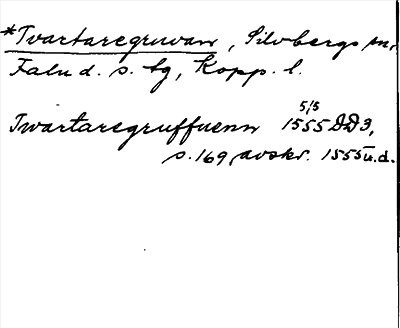 *Tvartaregruvan, Silvbergs sn,
Falu d. s. bg, Kopp. l.
Twartaregruffuenn 5/5 1555 DD3,
s. 169, avskr. 1555 u.d.